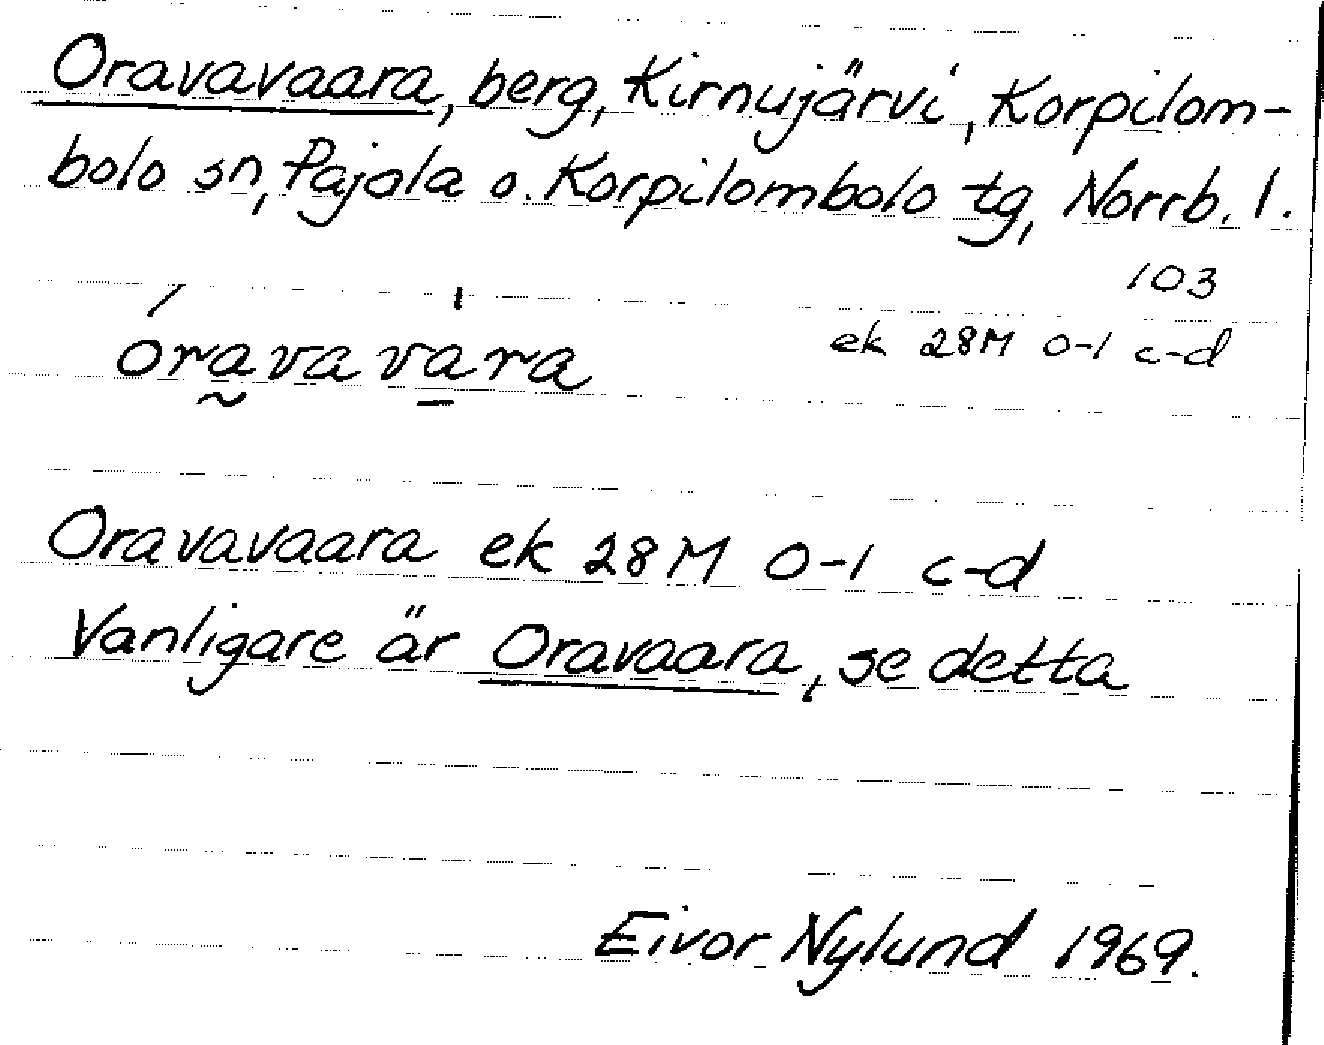 Oravavaara, berg, Kirnujärvi, Korpilom-
bolo sn, Pajala o. Korpilombolo tg, Norrb. l.
103
oravavara
ek 28M 0-1 c-d
Oravavaara ek 28M 0-1 c-d
Vanligare är Oravaara, se detta
Eivor Nylund 1969.